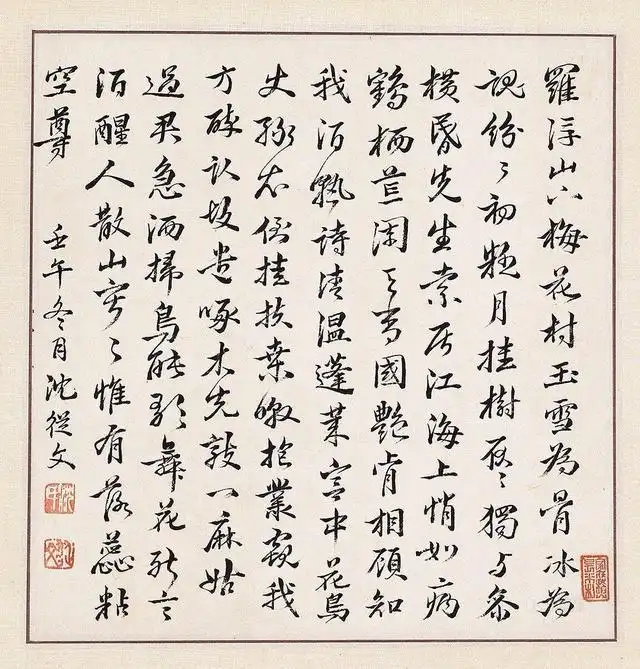 羅浮山下梅花村玉雪為骨冰為
魂紛〻初疑月挂樹耿〻獨与参
横昏先生索居江海上悄如病
鶴栖荒園天香國艷肯相顧知
我酒熟詩清温蓬莱宫中花鳥
使緑衣倒挂扶桑暾抱叢窺我
方醉卧故遣啄木先敲门麻姑
過君急洒掃鳥能歌舞花能言
酒醒人散山寂〻惟有落蕊粘
空尊
壬午冬月沈從文